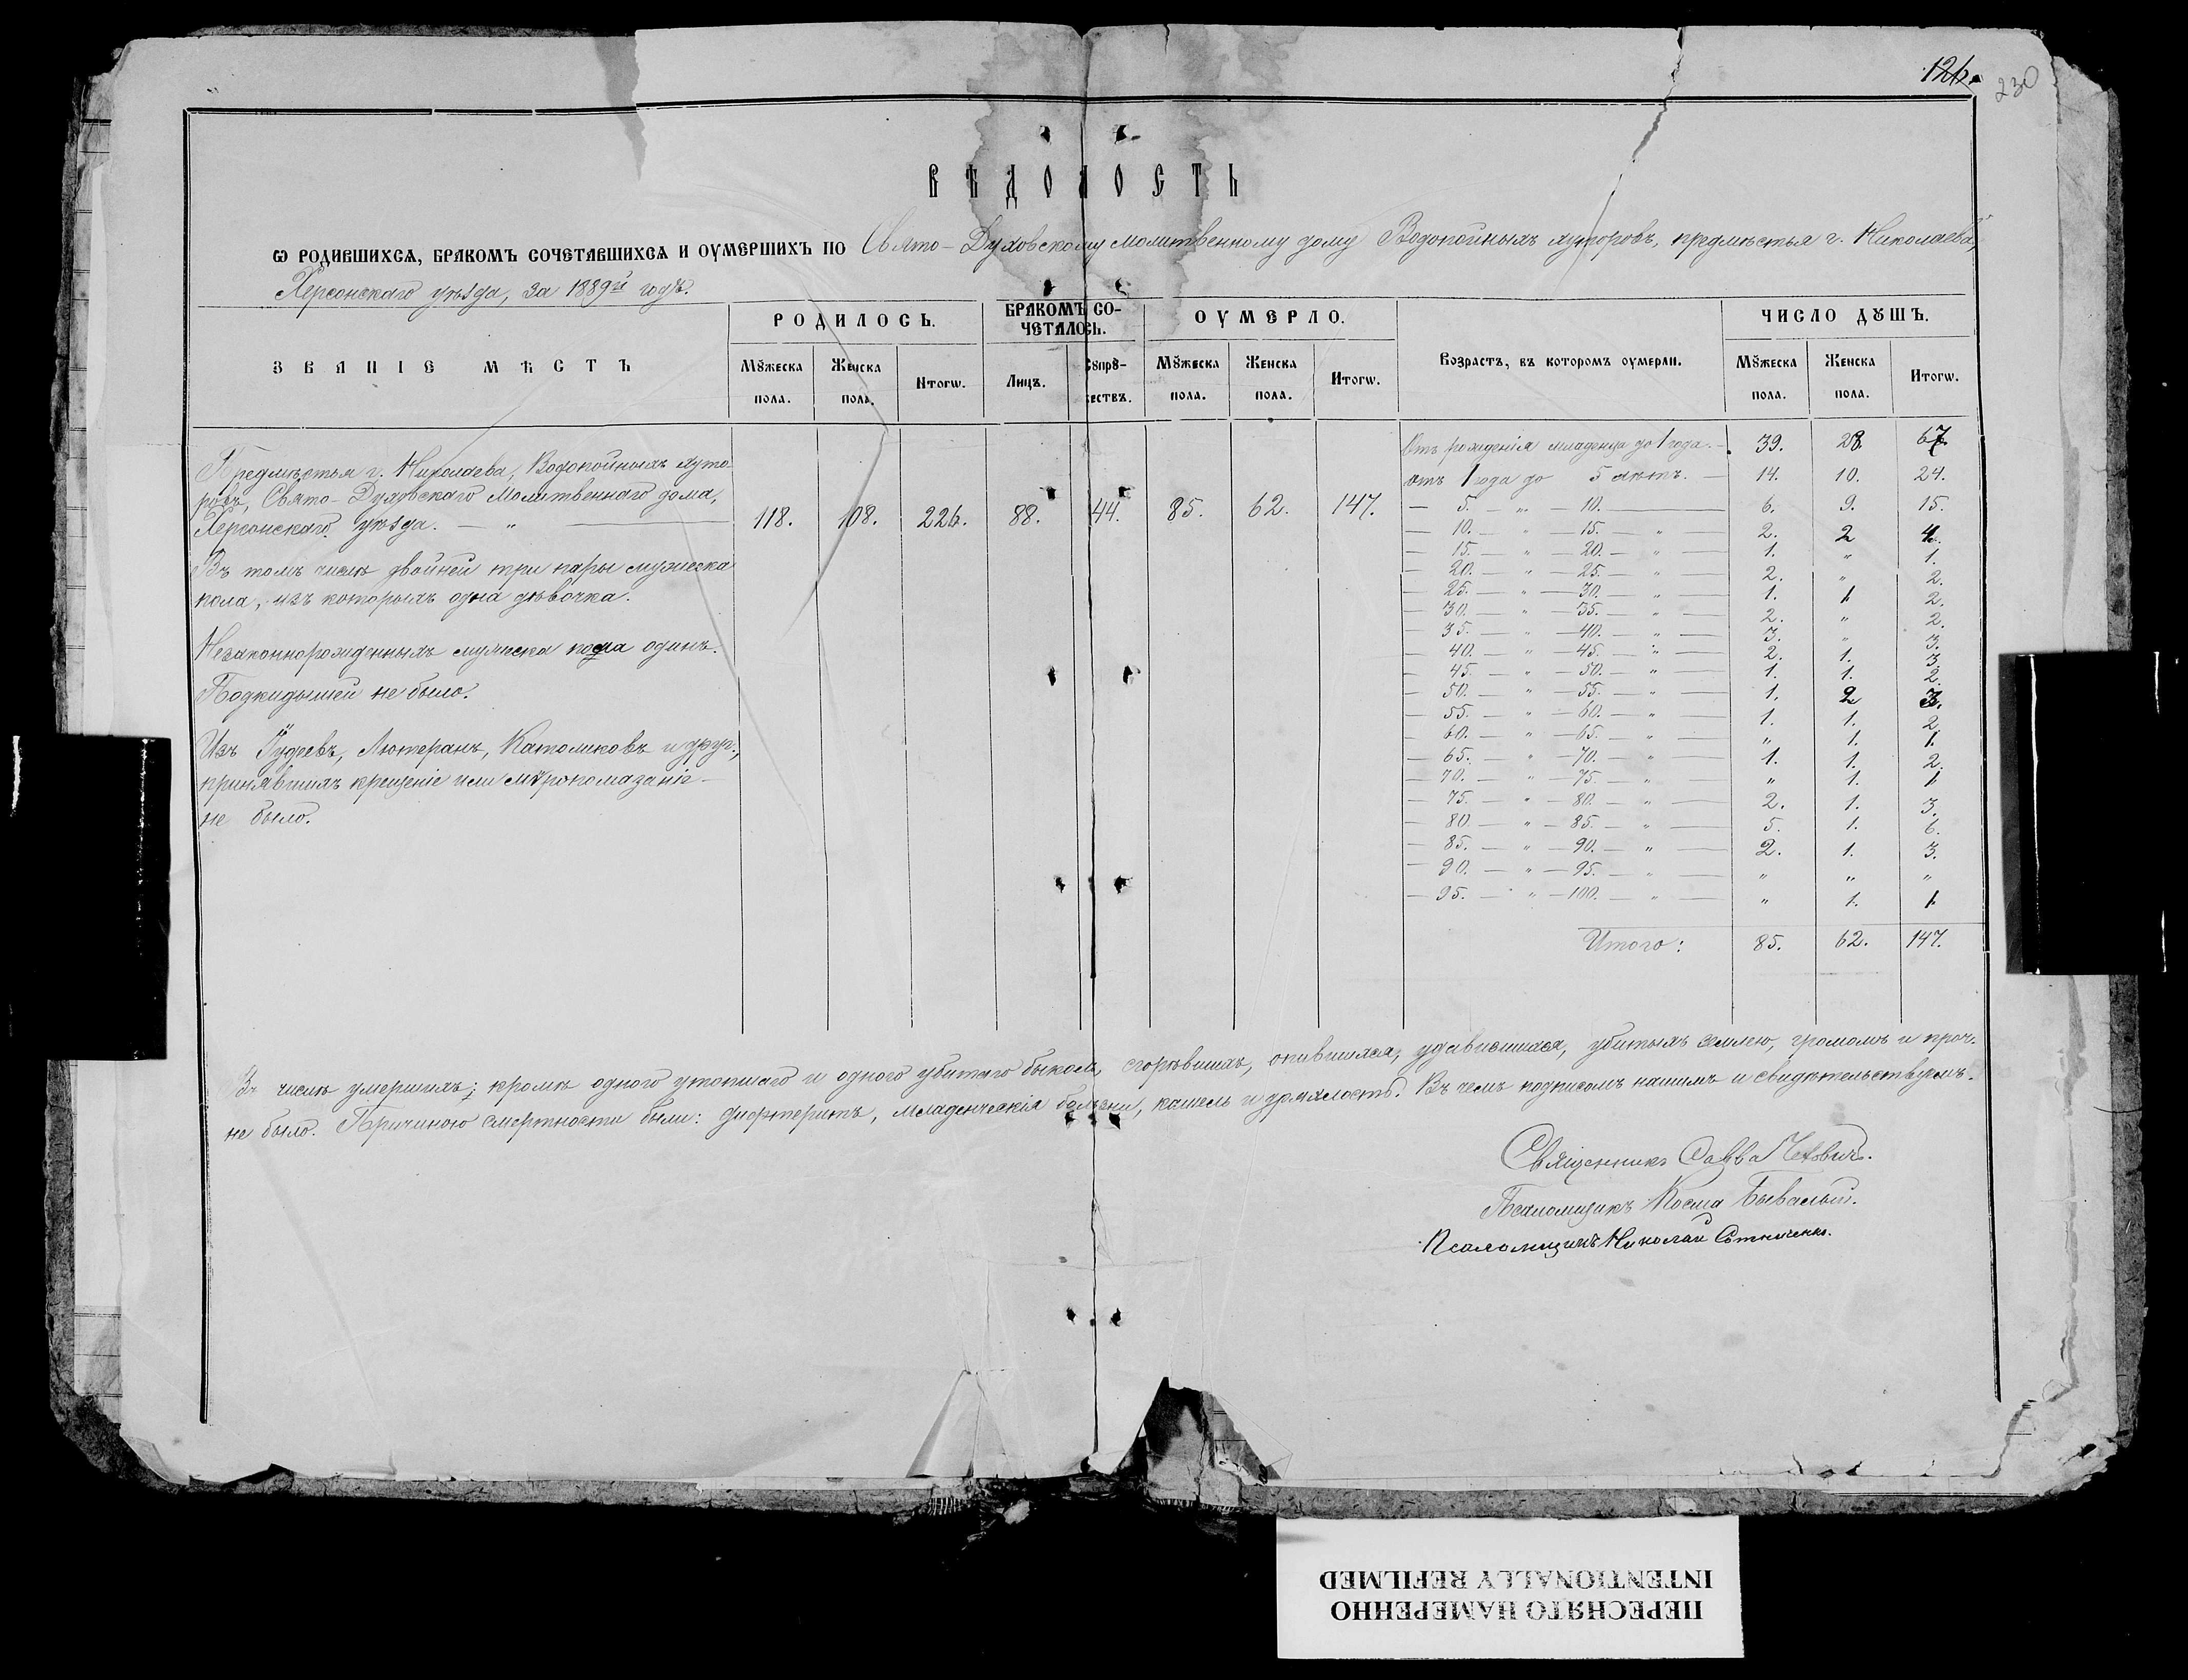 126.
230
ВѢДОМОСТЬ
Ѡ РОДИВШИХСѦ, БРАКОМЪ СОЧЕТАВШИХСѦ И ОУМЕРШИХЪ ПО Свято-Духовскому молитвенному дому Водопойныхъ хуторовъ, предмѣстья г. Николаева,
Херсонскаго уѣзда, за 1889й годъ.
ЗВАНІЕ МѢСТЪ
РОДИЛОСЬ.
БРАКОМЪ СО-
ЧЕТАЛОСЬ.
ОУМЕРЛО.
Возрастъ, въ которомъ оумерли.
ЧИСЛО ДꙋШЪ.
Мꙋжеска пола. Женска пола. Итогѡ. Лицъ. Сꙋпрꙋ-жествъ. Мꙋжеска пола. Женска пола. Итогѡ. Мꙋжеска пола. Женска пола. Итогѡ.
Предмѣстья г. Николаева, Водопойныхъ хуто-
ровъ, Свято-Духовскаго Молитвеннаго дома,
Херсонскаго уѣзда. — „ — 118. 108. 226. 88. 44. 85. 62. 147.
Въ томъ числѣ двойней три пары мужеска
пола, изъ которыхъ одна дѣвочка.
Незаконнорожденныхъ мужеска пола одинъ.
Подкидышей не было.
Изъ Іудеевъ, Лютеранъ, Католиковъ и друг.,
принявшихъ крещеніе или мѵропомазаніе
не было.
Отъ рожденія младенца до 1 года. — 39. 28 67.
отъ 1 года до 5 лѣтъ. — 14. 10. 24.
— 5. — „ — 10. — 6. 9. 15.
— 10. — „ — 15. — „ — 2. 2 4.
— 15. — „ — 20. — „ — 1. „ 1.
— 20. — „ — 25. — „ — 2. „ 2.
— 25. — „ — 30. — „ — 1. 1 2.
— 30. — „ — 35. — „ — 2. „ 2.
— 35. — „ — 40. — „ — 3. „ 3.
— 40. — „ — 45. — „ — 2. 1. 3.
— 45. — „ — 50. — „ — 1. 1. 2.
— 50. — „ — 55. — „ — 1. 2 3.
— 55. — „ — 60. — „ — 1. 1. 2
— 60. — „ — 65. — „ — „ 1. 1.
— 65. — „ — 70. — „ — 1. 1. 2.
— 70. — „ — 75. — „ — „ 1. 1
— 75. — „ — 80. — „ — 2. 1. 3.
— 80. — „ — 85. — „ — 5. 1. 6.
— 85. — „ — 90. — „ — 2. 1. 3.
— 90. — „ — 95. — „ — „ „ „
— 95. — „ — 100. — „ — „ 1. 1.
Итого: 85. 62. 147.
Въ числѣ умершихъ; кромѣ одного утопшаго и одного убитаго быкомъ, сгорѣвшихъ, опившихся, удавившихся, убитыхъ землею, громомъ и проч.
не было. Причиною смертности были: дифтеритъ, младенческія болѣзни, кашель и дряхлость. Въ чемъ подписомъ нашимъ и свидѣтельствуемъ.
Священникъ Савва
Псаломщикъ Косма Бывалый.
Псаломщикъ Николай Сотниченко.
ПЕРЕСНЯТО НАМЕРЕННО
INTENTIONALLY REFILMED